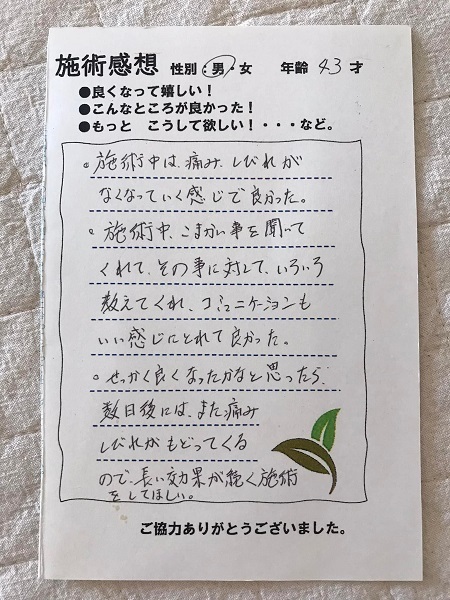 施術感想 性別:男・女 年齢 43 才
●良くなって嬉しい!
●こんなところが良かった!
●もっと こうして欲しい!・・・など。
。施術中は、痛み、しびれが
なくなっていく感じで良かった。
。施術中、こまかい事を聞いて
くれて、その事に対して、いろいろ
教えてくれ、コミュニケーションも
いい感じにとれて良かった。
。せっかく良くなったかなと思ったら、
数日後には、また痛み
しびれがもどってくる
ので、長い効果が続く施術
をしてほしい。
ご協力ありがとうございました。